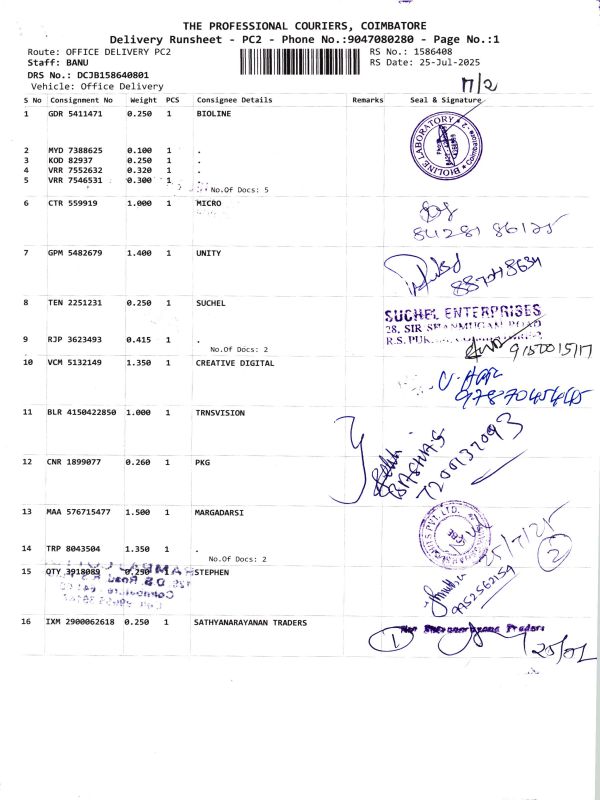 THE PROFESSIONAL COURIERS, COIMBATORE
Delivery Runsheet - PC2 - Phone No.:9047080280 - Page No.:1
Route: OFFICE DELIVERY PC2 RS No.: 1586408
Staff: BANU RS Date: 25-Jul-2025
DRS No.: DCJB158640801
Vehicle: Office Delivery
S No Consignment No Weight PCS Consignee Details Remarks Seal & Signature
1 GDR 5411471 0.250 1 BIOLINE
BIOLINE LABORATORY
2 MYD 7388625 0.100 1 .
3 KOD 82937 0.250 1 .
4 VRR 7552632 0.320 1 .
5 VRR 7546531 0.300 1 .
No.Of Docs: 5
6 CTR 559919 1.000 1 MICRO
84281 86125
7 GPM 5482679 1.400 1 UNITY
8 TEN 2251231 0.250 1 SUCHEL
SUCHEL ENTERPRISES
28, SIR SHANMUGAM ROAD
9 RJP 3623493 0.415 1 .
No.Of Docs: 2
10 VCM 5132149 1.350 1 CREATIVE DIGITAL
11 BLR 4150422850 1.000 1 TRNSVISION
7200132093
12 CNR 1899077 0.260 1 PKG
13 MAA 576715477 1.500 1 MARGADARSI
25/7/25
2
14 TRP 8043504 1.350 1 .
No.Of Docs: 2
15 QTY 3918089 0.250 1 STEPHEN
9952562159
16 IXM 2900062618 0.250 1 SATHYANARAYANAN TRADERS